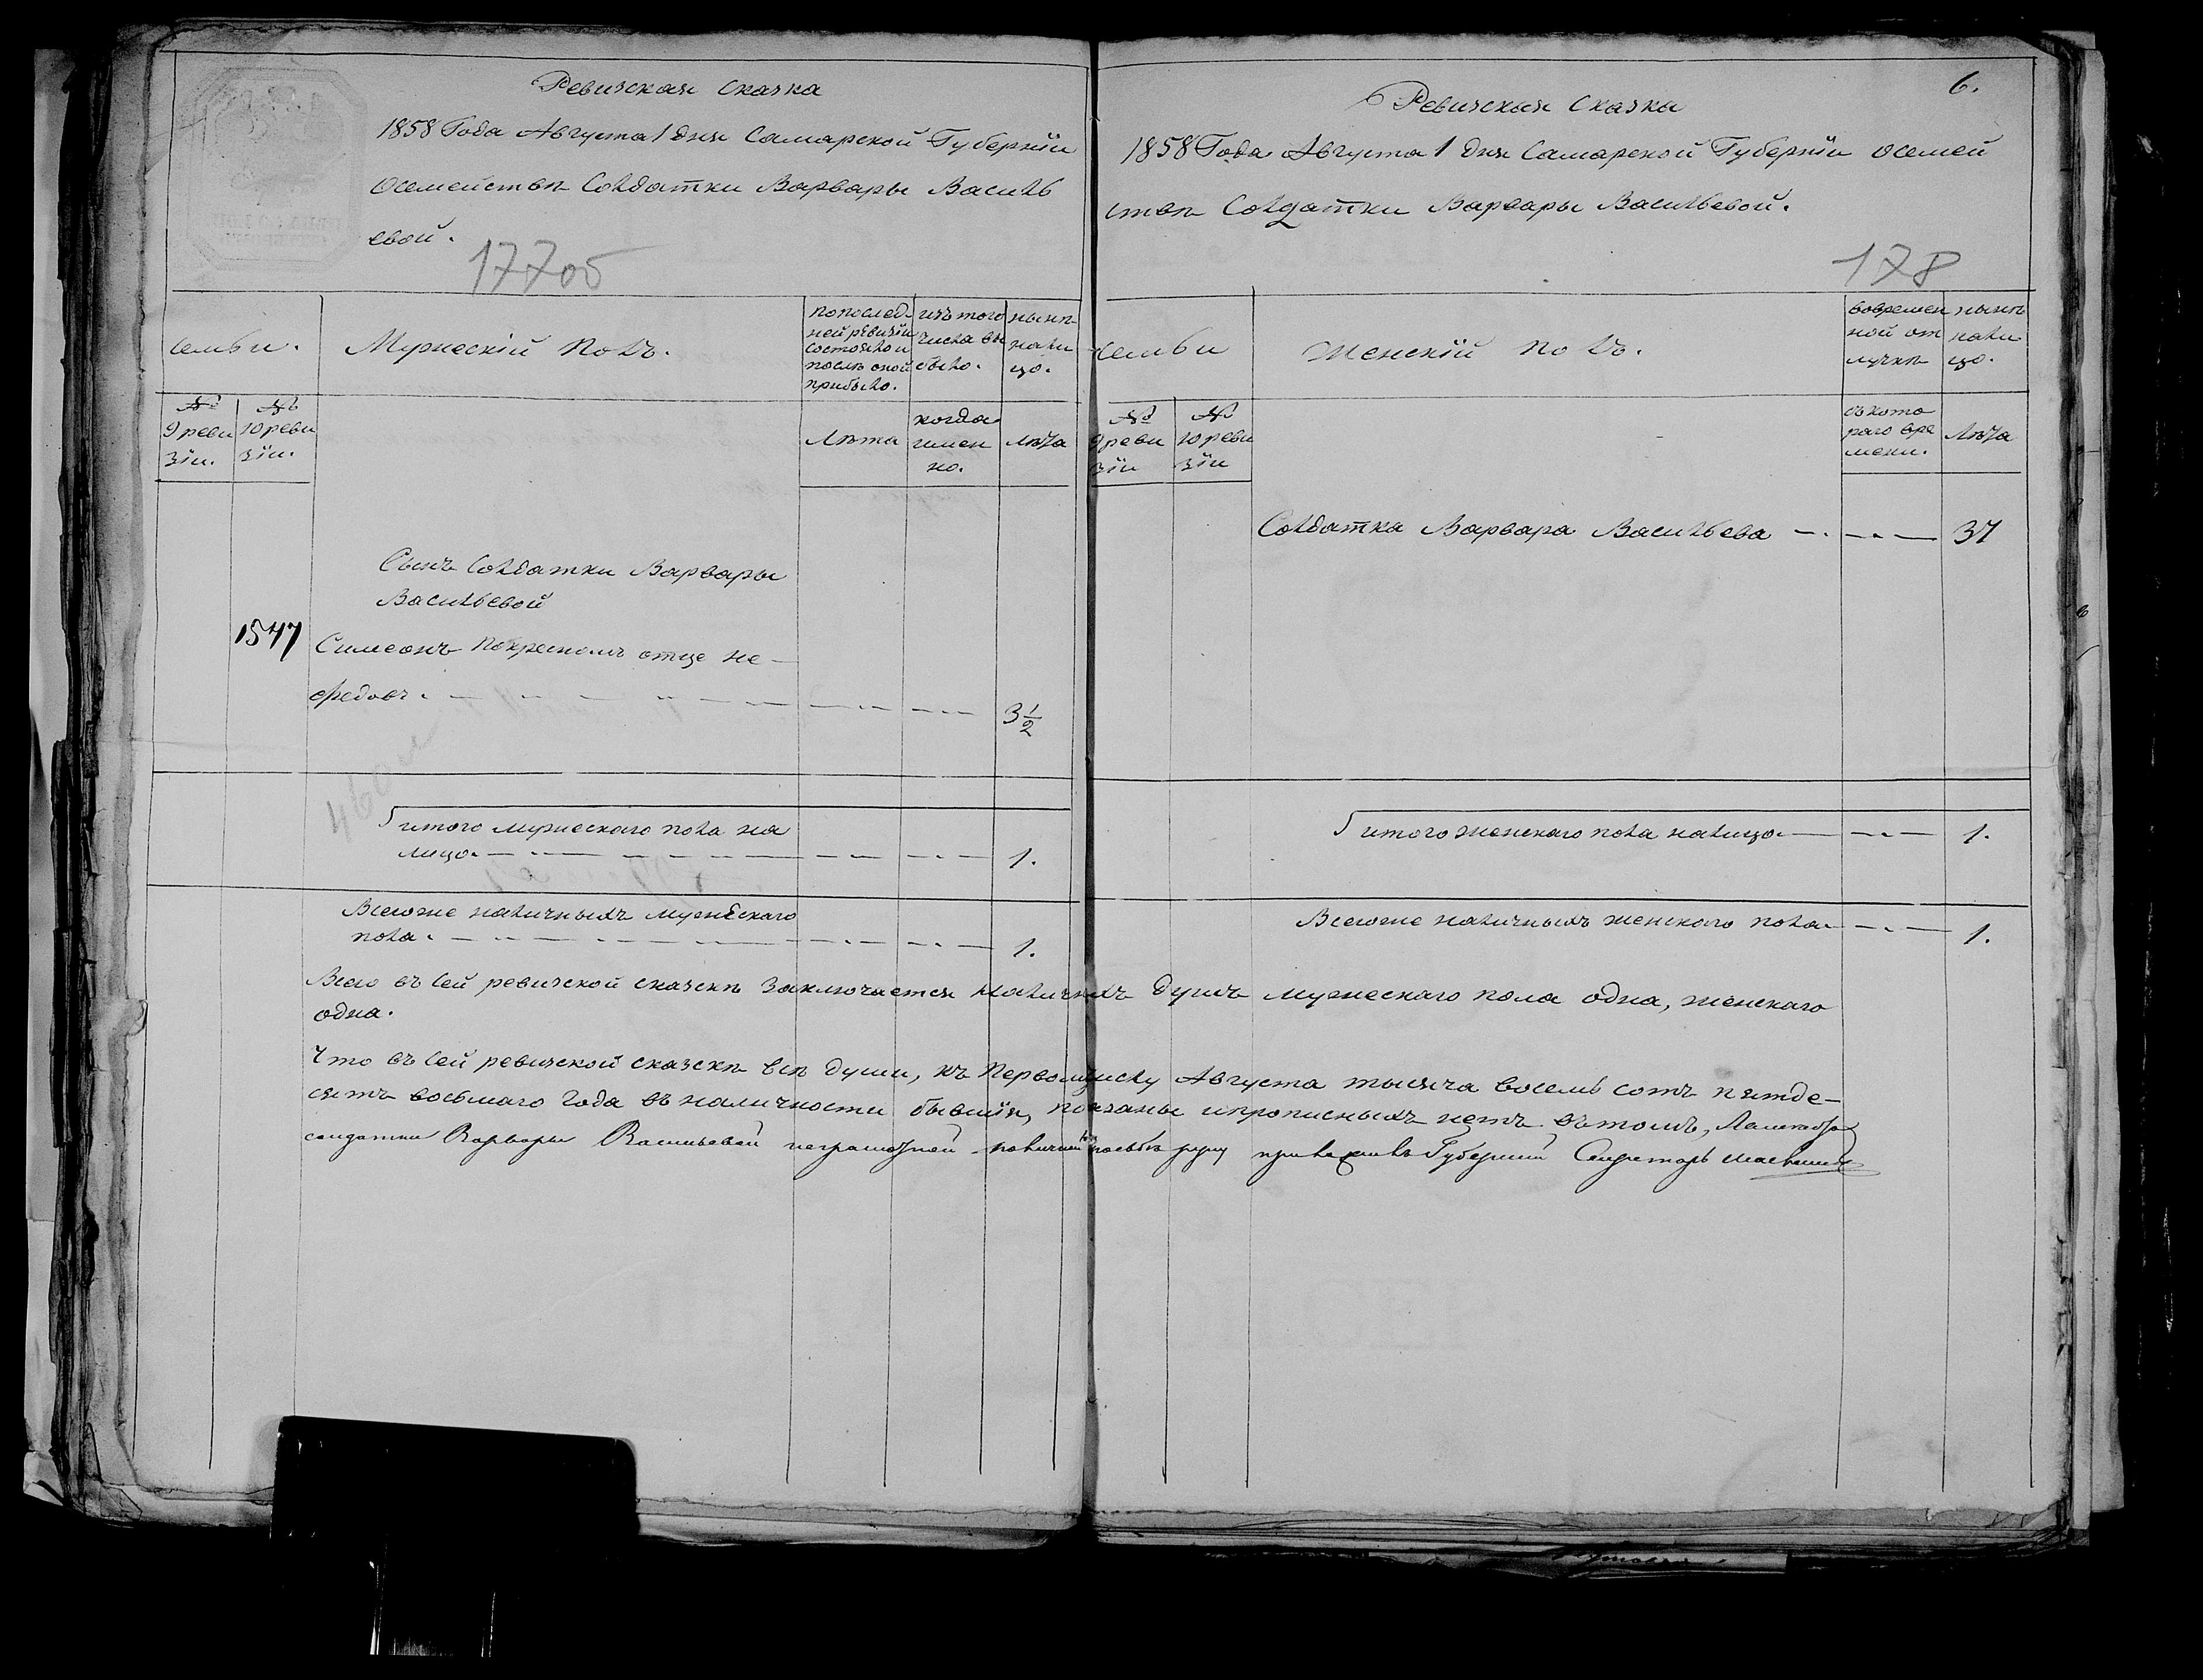 Ревизская сказка
1858 Года Августа 1 дня Самарской Губернiи
осемействѣ Солдатки Варвары Василь
евой.
177об
семьи.
Мужескiй полъ.
попослед-
ней ревизiи
состояло и
послѣ оной
прибыло.
изъ того
числа вы
было.
нынѣ
нали
цо.
№
9 реви
зiи.
№
10 реви
зiи.
Лѣта
когда
имен
но.
лѣта
Сынъ солдатки Варвары
Васильевой
1547
Симеонъ покресномъ отце не-
федовъ.
3 1/2
итого мужескаго пола на
лицо.
1.
Всегоже наличныхъ мужескаго
пола.
1.
6.
Ревизская Сказка
1858 Года Августа 1 дня Самарской Губернiи осемей
ствѣ Солдатки Варвары Васильевой.
178
семьи
Женскiй полъ.
вовремен
ной от
лучкѣ
нынѣ
нали
цо.
№
9 реви
зiи
№
10 реви
зiи
съ кото
раго вре
мени.
Лѣта
Солдатка Варвара Васильева
37
итого женскаго пола налицо
1.
Всегоже наличныхъ женскаго пола
1.
Всего въ сей ревизской сказскѣ заключается наличныхъ душъ мужескаго пола одна, женскаго
одна.
Что въ сей ревизской сказскѣ всѣ души, къ первому числу Августа тысяча восемь сотъ пятде-
сятъ восьмаго года въ наличности бывшiя, показаны ипрописныхъ нетъ. Въ томъ,
солдатки Варвары Васильевой неграмотной руку приложилъ Губернскiй Секретарь